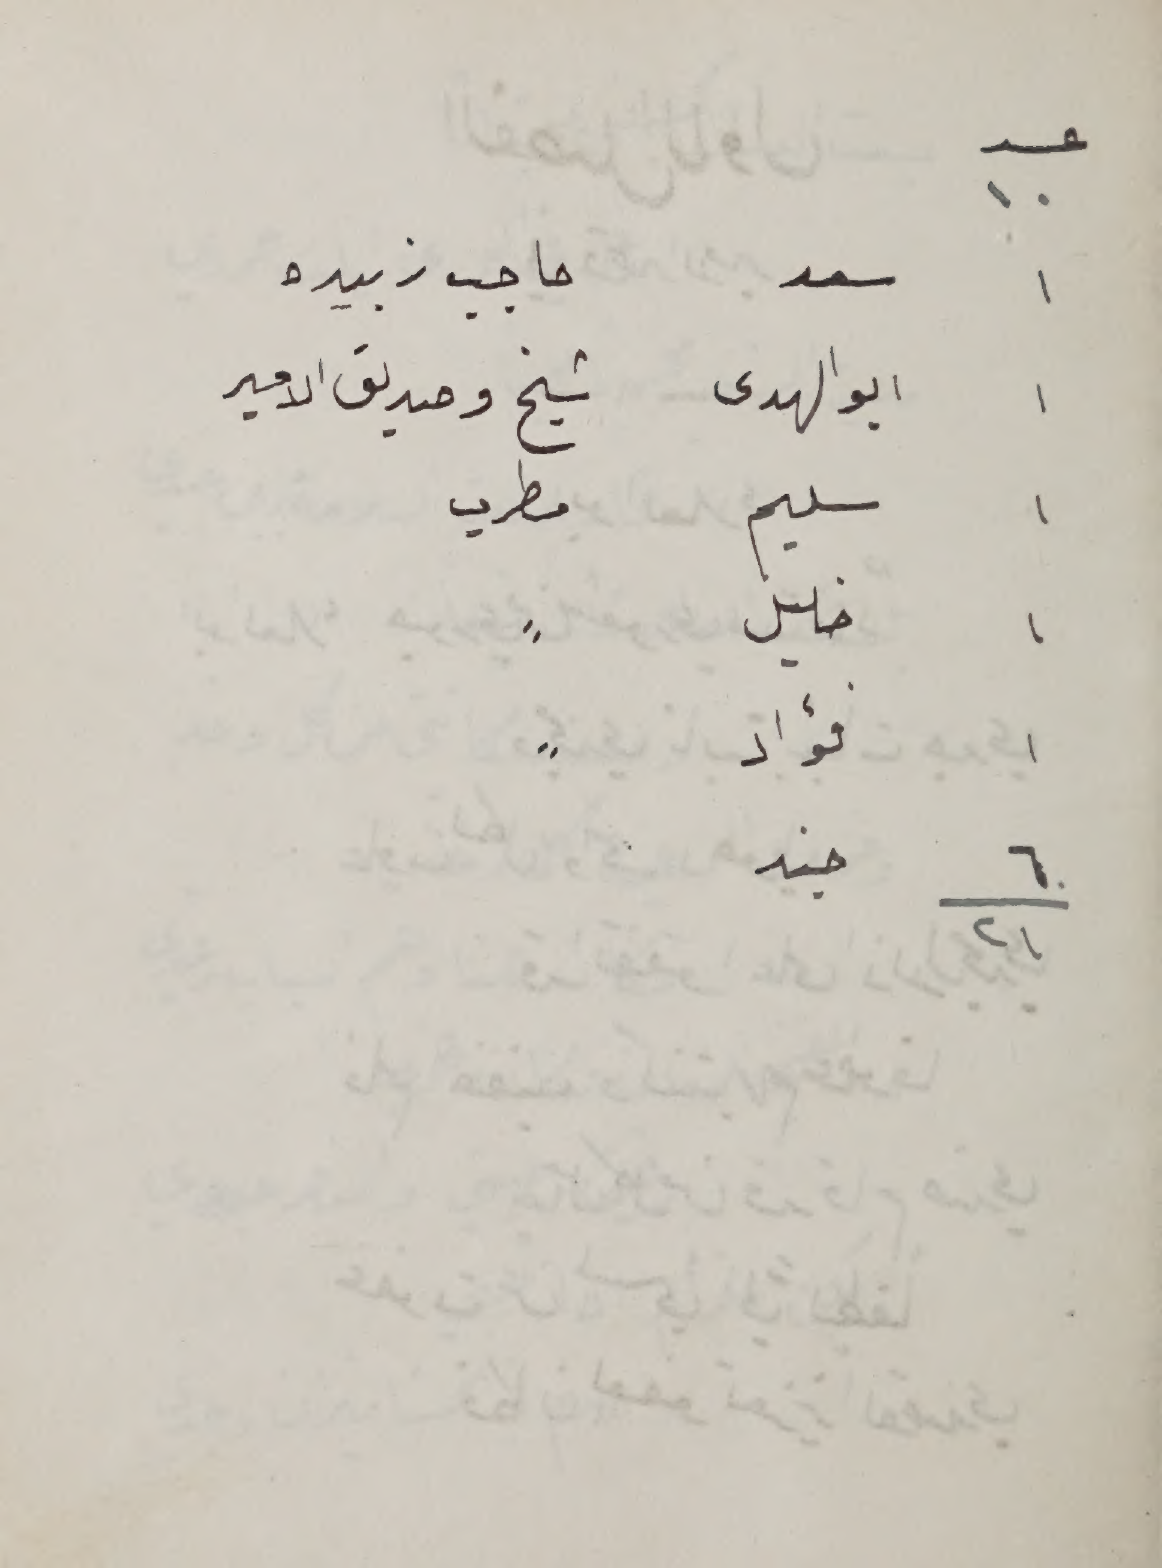 عدد
١٠
١ سعد حاجب زبيده
١ ابوالهدى شيخ وصديق الامير
١ سليم مطرب
١ خليل "
١ فؤاد "
٦ جند
٢١